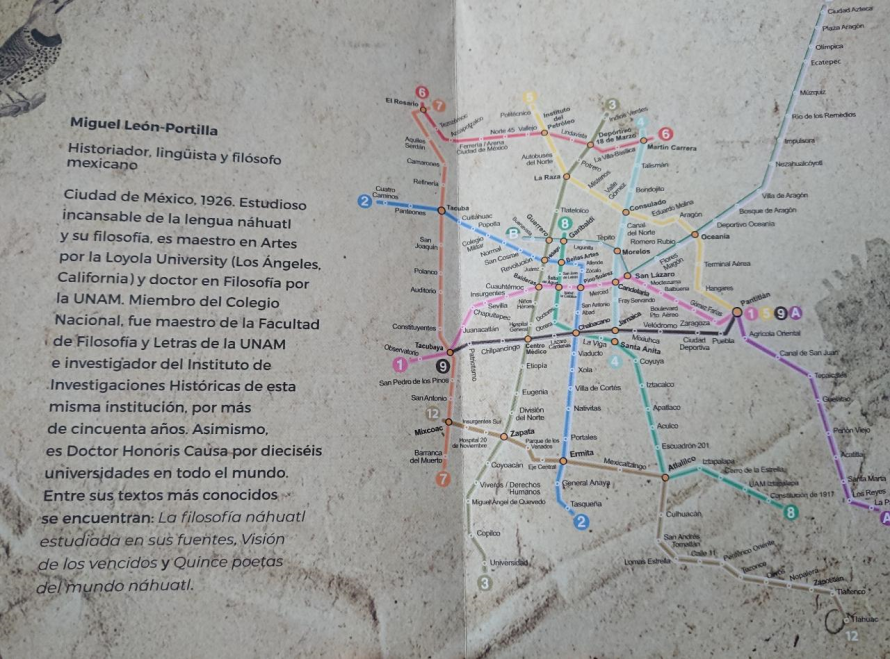 Miguel León-Portilla
Historiador, lingüista y filósofo
mexicano
Ciudad de México, 1926. Estudioso
incansable de la lengua náhuatl
y su filosofía, es maestro en Artes
por la Loyola University (Los Ángeles,
California) y doctor en Filosofía por
la UNAM. Miembro del Colegio
Nacional, fue maestro de la Facultad
de Filosofía y Letras de la UNAM
e investigador del Instituto de
Investigaciones Históricas de esta
misma institución, por más
de cincuenta años. Asimismo,
es Doctor Honoris Causa por dieciséis
universidades en todo el mundo.
Entre sus textos más conocidos
se encuentran: La filosofía náhuatl
estudiada en sus fuentes, Visión
de los vencidos y Quince poetas
del mundo náhuatl.
Ciudad Azteca
Plaza Aragón
Olímpica
Ecatepec
Múzquiz
Río de los Remedios
Impulsora
Nezahualcóyotl
Villa de Aragón
Bosque de Aragón
Deportivo Oceanía
Oceanía
Romero Rubio
6
7
El Rosario
Aquiles
Serdán
Camarones
Refinería
2
Cuatro
Caminos
Panteones
Tacuba
San
Joaquín
Polanco
Auditorio
Constituyentes
Tacubaya
Observatorio
1
9
San Pedro de los Pinos
San Antonio
12
Mixcoac
Barranca
del Muerto
7
Norte 45
Vallejo
Ferrería/Arena
Ciudad de México
Politécnico
Instituto
del
Petróleo
Lindavista
3
Indios Verdes
Deportivo
18 de Marzo
La Villa-Basílica
4
6
Martín Carrera
Talismán
Bondojito
Consulado
Canal
del Norte
Morelos
Autobuses
del Norte
La Raza
Potrero
Misterios
Valle
Gómez
Eduardo Molina
Aragón
Terminal Aérea
Hangares
Pantitlán
1 5 9 A
Cuitláhuac
Popotla
Colegio
Militar
Normal
San Cosme
Revolución
Tlatelolco
B
8
Guerrero
Garibaldi
Tepito
Bellas Artes
San Lázaro
Flores
Magón
Candelaria
Merced
Moctezuma
Balbuena
Gómez Farías
Zaragoza
Cuauhtémoc
Insurgentes
Sevilla
Chapultepec
Juanacatlán
Niños
Héroes
Hospital
General
Centro
Médico
Chilpancingo
Patriotismo
Chabacano
Jamaica
Fray Servando
Velódromo
Ciudad
Deportiva
Puebla
Mixiuhca
La Viga
Santa Anita
4
Viaducto
Xola
Villa de Cortés
Nativitas
Portales
Ermita
General Anaya
Tasqueña
2
Etiopía
Eugenia
División
del Norte
Zapata
Insurgentes Sur
Hospital 20
de Noviembre
Parque de los
Venados
Eje Central
Mexicaltzingo
Coyoacán
Viveros / Derechos
Humanos
Miguel Ángel de Quevedo
Copilco
Universidad
3
Coyuya
Iztacalco
Apatlaco
Aculco
Escuadrón 201
Atlalilco
Iztapalapa
Cerro de la Estrella
UAM Iztapalapa
Constitución de 1917
8
Culhuacán
San Andrés
Tomatlán
Lomas Estrella
Calle 11
Periférico Oriente
Tezonco
Olivos
Nopalera
Zapotitlán
Tlaltenco
Tláhuac
12
Agrícola Oriental
Canal de San Juan
Tepalcates
Guelatao
Peñón Viejo
Acatitla
Santa Marta
Los Reyes
La P
A